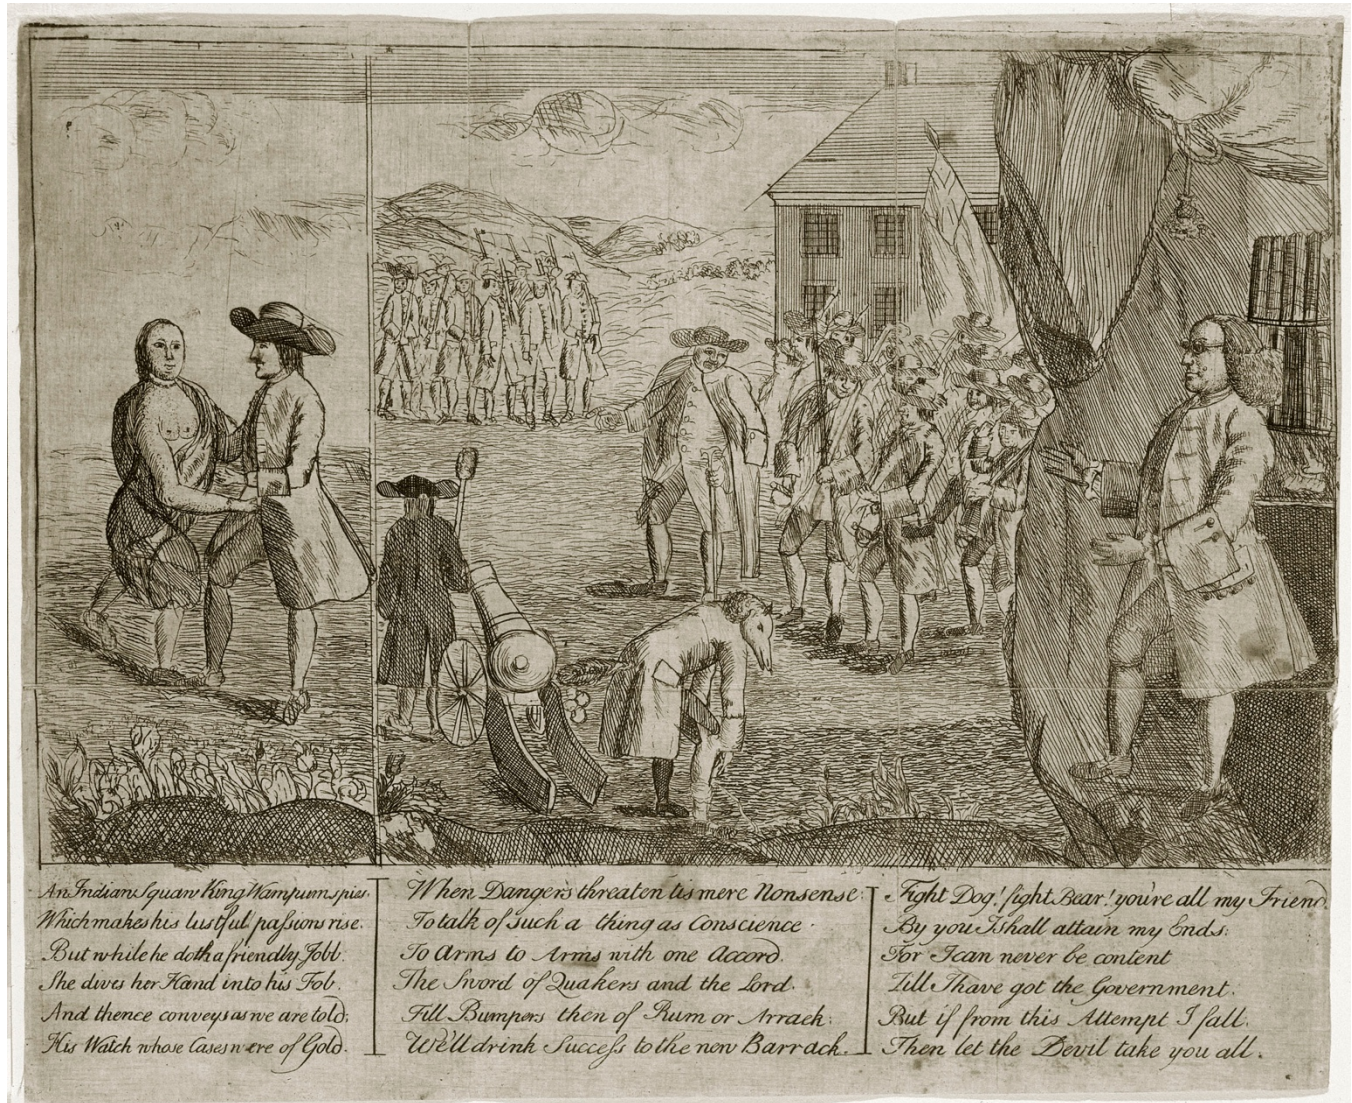 An Indian Squaw King Wampum spies
Which makes his lustful passions rise.
But while he doth a friendly Jobb.
She dives her Hand into his Fob.
And thence conveys as we are told;
His Watch whose Cases were of Gold.
When Dangers threaten tis mere Nonsense;
To talk of such a thing as Conscience.
To Arms to Arms with one Accord.
The Sword of Quakers and the Lord.
Fill Bumpers then of Rum or Arrack.
We'll drink Success to the new Barrack.
Fight Dog! fight Bear! you're all my Friend
By you I shall attain my Ends;
For I can never be content
Till I have got the Government.
But if from this Attempt I fall.
Then let the Devil take you all.